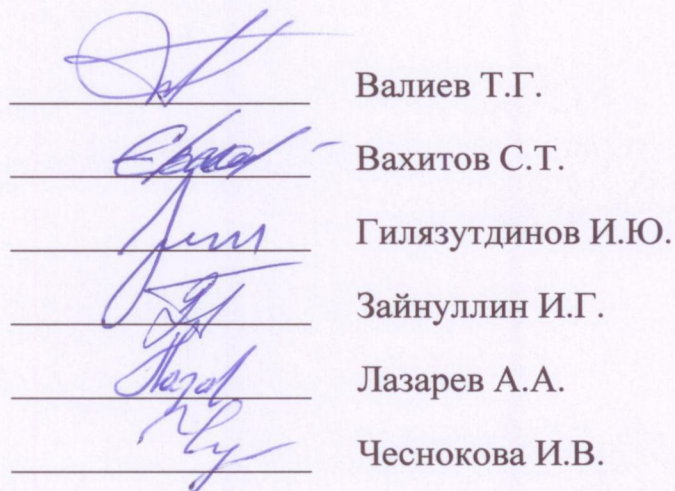 Валиев Т.Г.
Вахитов С.Т.
Гилязутдинов И.Ю.
Зайнуллин И.Г.
Лазарев А.А.
Чеснокова И.В.